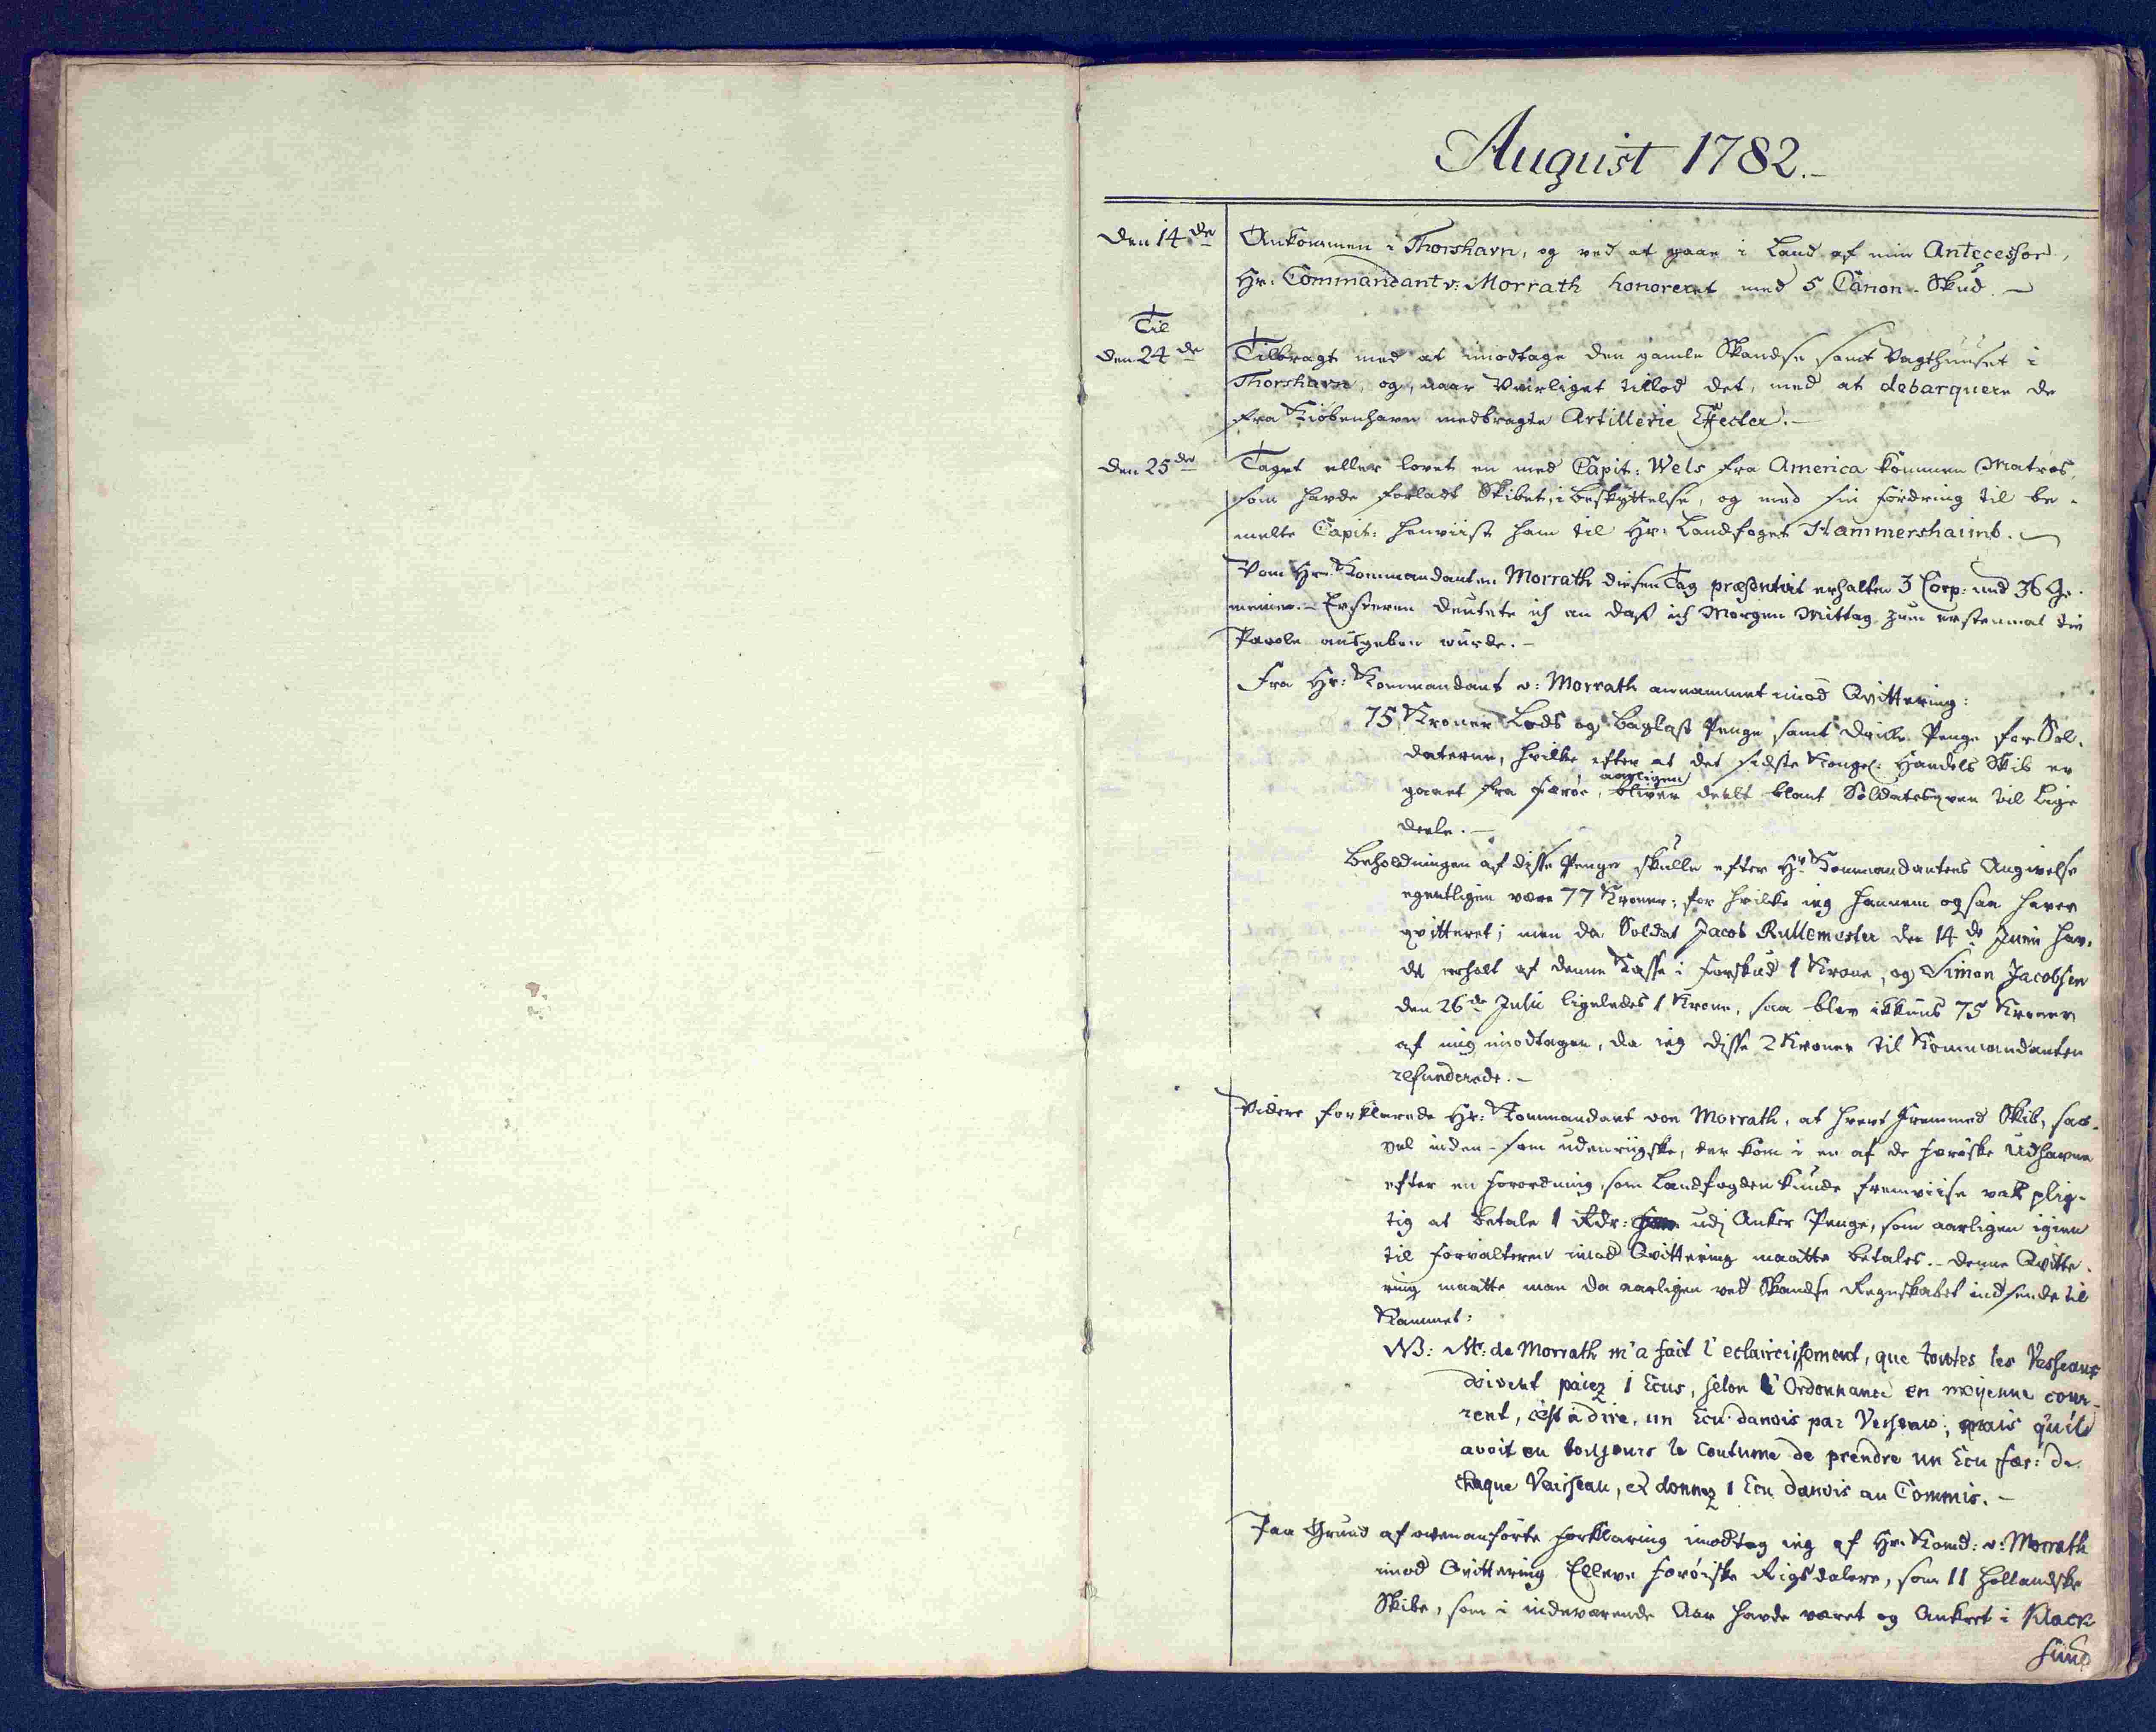 August 1782.-
Den 14de Ankommen i Thorshavn, og ved at gaae i Land af min Antecessor,
Hr: Commandant v: Morrath honoreret med 5 Canon-Skud.-
Til
den 24de Tilbragt med at imodtage den gamle Skandse samt Vagthuuset i
Thorshavn, og, naar Veirliget tillod det, med at debarquere de
fra Kiöbenhavn medbragte Artillerie Effecter.-
den 25de Taget eller lovet en med Capit: Wels fra America kommen Matros,
som havde forladt Skibet, i Beskyttelse, og med sin fordring til be-
melte Capit: henviist ham til Hr: Landfoget Hammershaimb.
Vom Hr: Kommandanten Morrath diesen Tag præsentirt erhalten 3 Corp: und 36 Ge-
meine.- Ersteren deutete ich an daß ich Morgen Mittag zum erstenmal die
Parole ausgeben würde.-
Fra Hr: Kommandant v: Morrath annammet imod Qvittering:
75 Kroner Lods og Baglast Penge samt Penge for Sol-
daterne, hvilke efter at det sidste Kongel: Handels Skib er
gaaet fra Færöe, aarligen bliver deelt blant Soldatesqven til lige
deele.-
Beholdningen af disse Penge skulle efter Hr Kommandantens Angivelse
egentligen være 77 Kroner; for hvilke ieg hannem ogsaa haver
qvitteret; men da Soldat Jacob Rullemester den 14de Junii hav-
de erholt af denne Kasse i Forskud 1 Krone, og Simon Jacobsen
den 26de Julii ligeledes 1 Krone, saa blev ikkuns 75 Kroner
af mig imodtagen, da ieg disse 2 Kroner til Kommandanten
refunderede.-
Videre forklarede Hr: Kommandant von Morrath, at hvert fremmed Skib, saa-
vel inden- som udenriigske, der kom i en af de færöske Udhavne
efter en Forordning, som Landfogden kunde fremviise var plig-
tig at betale 1 Rdr: udj Anker Penge, som aarligen igien
til Forvalteren imod Qvittering maatte betales.- Denne Qvitte-
ring maatte man da aarligen ved Skandse Regnskabet indsende til
Kammet:
NB: Mr: de Morrath m'a fait l'eclaircissement, que toutes les Vesseaux
doivent païez 1 Ecus, selon l'Ordonnance en moÿenne cour-
rent, c'est à dire, un Ecu danois par Vesseau; mais qu'il
avoit eu toujours le Coutume de prendre un Ecu fær: de
chaque Vaisseau, et donnez 1 Ecu danois au Commis.-
Paa Grund af ovenanförte Forklaring imodtog ieg af Hr: Komd: v: Morrath
imod Qvittering Elleve færöiske Rigsdalere, som 11 hollandske
Skibe, som i indeværende Aar havde været og Ankret i Klack-
sund